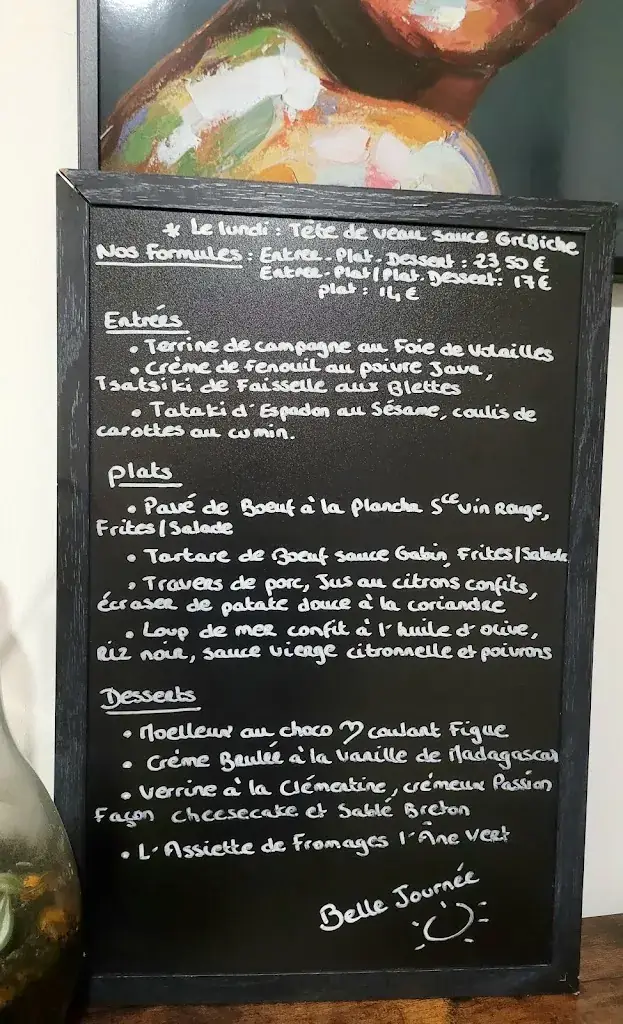 * Le lundi : Tête de veau sauce Gribiche
Nos Formules : Entrée - Plat - Dessert : 23,50 €
Entrée - Plat / Plat - Dessert : 17 €
plat : 14 €
Entrées
• Terrine de campagne au Foie de Volailles
• Crème de Fenouil au poivre Java,
Tsatsiki de Faisselle aux Blettes
• Tataki d'Espadon au Sésame, coulis de
carottes au cumin.
plats
• Pavé de Boeuf à la plancha Sce Vin Rouge,
Frites / Salade
• Tartare de Boeuf sauce Gabin, Frites / Salade
• Travers de porc, Jus au citrons confits,
écraser de patate douce à la coriandre
• Loup de mer confit à l'huile d'olive,
Riz noir, sauce vierge citronnelle et poivrons
Desserts
• Moelleux au choco ♡ coulant Figue
• Crème Brulée à la Vanille de Madagascar
• Verrine à la Clémentine, crémeux Passion
Façon cheesecake et Sablé Breton
• L'Assiette de Fromages l'Âne Vert
Belle Journée